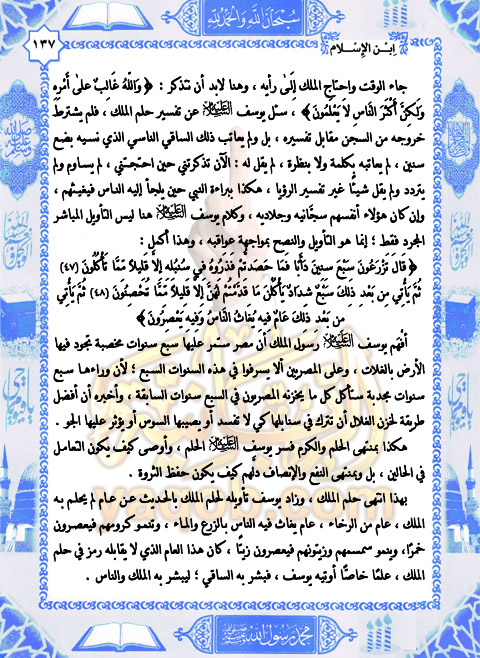 سبحان الله والحمد لله
١٣٧
اِبن الإِسلام
جاء الوقت واحتاج الملك إلَى رأيه ، وهنا لابد أن نتذكر : ﴿ وَاللَّهُ غَالِبٌ عَلَىٰ أَمْرِهِ
وَلَكِنَّ أَكْثَرَ النَّاسِ لاَ يَعْلَمُونَ ﴾ ، سئل يوسف عليه السلام عن تفسير حلم الملك ، فلم يشترط
خروجه من السجن مقابل تفسيره ، بل ولم يعاتب ذلك الساقي الناسي الذي نسيه بضع
سنين ، لم يعاتبه بكلمة ولا بنظرة ، لم يقل له : الآن تذكرتني حين احتجتني ، لم يساوم ولم
يتردد ولم يقل شيئًا غير تفسير الرؤيا ، هكذا ببراءة النبي حين يلجأ إليه الناس فيغيثهم ،
وإن كان هؤلاء أنفسهم سجّانيه وجلاديه ، وكلام يوسف عليه السلام هنا ليس التأويل المباشر
المجرد فقط ؛ إنما هو التأويل والنصح بمواجهة عواقبه ، وهذا أكمل :
﴿ قَالَ تَزْرَعُونَ سَبْعَ سِنينَ دَأَبًا فَمَا حَصَدتُّمْ فَذَرُوهُ فِي سُنبُلِهِ إِلاَّ قَلِيلاً مِّمَّا تَأْكُلُونَ (٤٧)
ثُمَّ يَأْتِي مِن بَعْدِ ذَلِكَ سَبْعٌ شِدَادٌ يَأْكُلْنَ مَا قَدَّمْتُمْ لَهُنَّ إِلاَّ قَلِيلاً مِّمَّا تُحْصِنُونَ (٤٨) ثُمَّ يَأْتِي
مِن بَعْدِ ذَلِكَ عَامٌ فِيهِ يُغَاثُ النَّاسُ وَفِيهِ يَعْصِرُونَ ﴾
أفهم يوسف عليه السلام رسول الملك أن مصر ستمر عليها سبع سنوات مخصبة تجود فيها
الأرض بالغلات ، وعلى المصريين ألا يسرفوا في هذه السنوات السبع ؛ لأن وراءها سبع
سنوات مجدبة ستأكل كل ما يخزنه المصريون في السبع سنوات السابقة ، وأخبره أن أفضل
طريقة لخزن الغلال أن تترك في سنابلها كي لا تفسد أو يصيبها السوس أو يؤثر عليها الجو .
هكذا بمنتهى الحلم والكرم فسر يوسف عليه السلام الحلم ، وأوصى كيف يكون التعامل
في الحالين ، بل وبمنتهى النفع والإنصاف دلّهم كيف يكون حفظ الثروة .
بهذا انتهى حلم الملك ، وزاد يوسف تأويله لحلم الملك بالحديث عن عام لم يحلم به
الملك ، عام من الرخاء ، عام يغاث فيه الناس بالزرع والماء ، وتنمو كرومهم فيعصرون
خمرًا، وينمو سمسمهم وزيتونهم فيعصرون زيتًا ، كان هذا العام الذي لا يقابله رمز في حلم
الملك ، علمًا خاصًّا أوتيه يوسف ، فبشر به الساقي ؛ ليبشر به الملك والناس .
محمد رسول الله